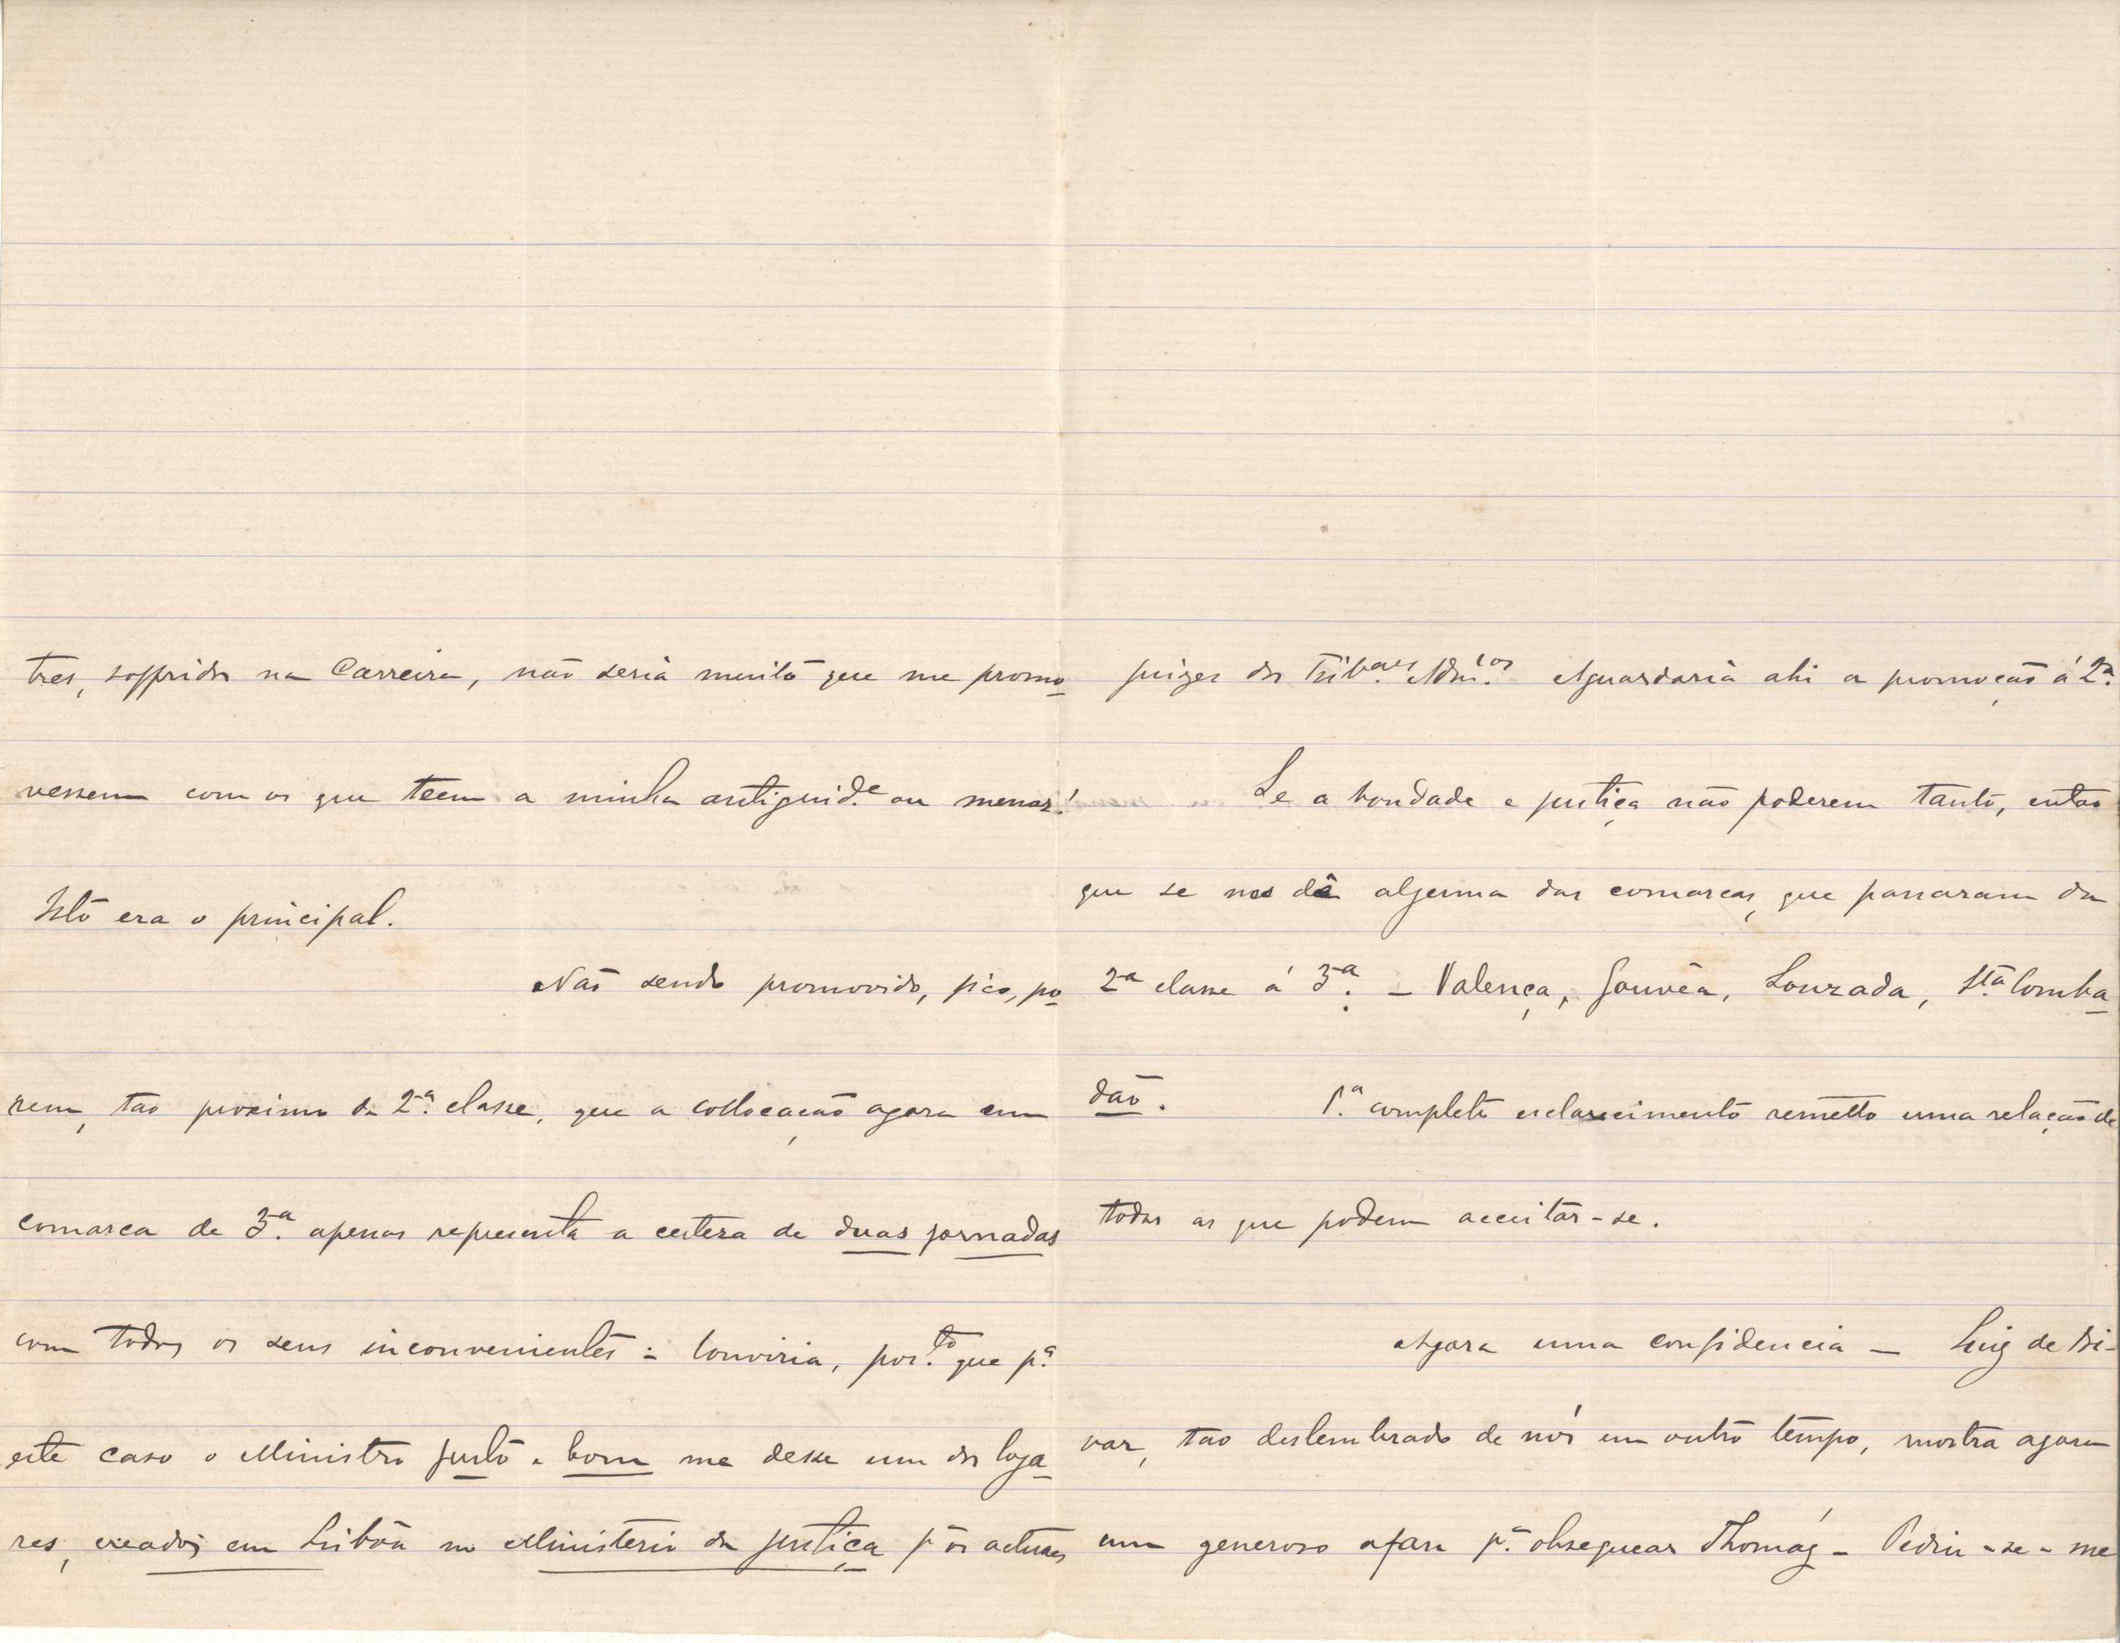 tres, soffridos na Carreira, não seria muito que me promo-
vessem com os que teem a minha antiguid.e ou menos!
Isto era o principal.
Não sendo promovido, fico, po-
rem, tão proximo da 2.ª classe, que a collocação agora em
comarca de 3.ª apenas representa a certeza de duas jornadas
com todos os seus inconvenientes: Conviria, por.to que p.ª
este caso o Ministro justo e bom me desse um dos loga-
res, creados em Lisbôa no Ministerio da Justiça p.ª os actuaes
juizes dos Trib.aes Adm.cos Aguardaria ahi a promoção á 2.ª
Se a bondade e justiça não poderem tanto, então
que se nos dê alguma das comarcas, que passaram da
2.ª classe á 3.ª – Valença, Gouvêa, Louzada, St.ª Comba-
dão. P.ª completo esclarecimento remetto uma relação de
todas as que podem acceitar-se.
Agora uma confidencia – Luiz de Bi-
var, tão deslembrado de nós em outro tempo, mostra agora
um generoso afan p.ª obsequear Thomáz – Pediu-se-me